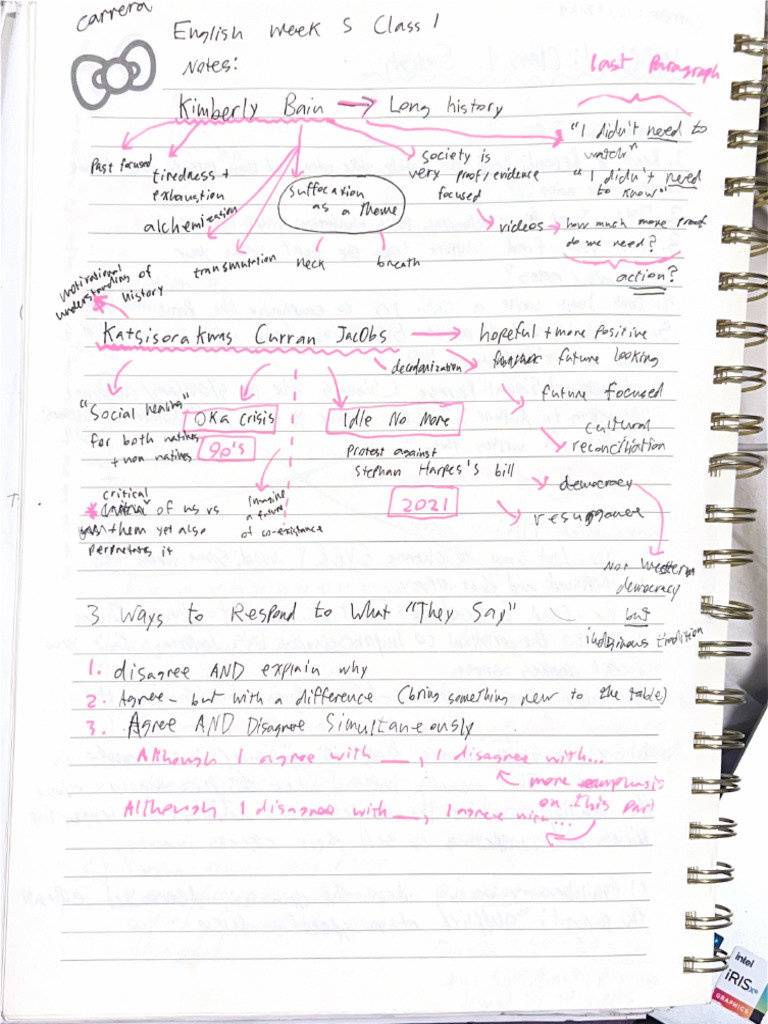 carrera
English Week 5 Class 1
Notes:
last Paragraph
Kimberly Bain → Long history
"I didn't need to
watch"
"I didn't need
to know"
Past focused
tiredness +
exhaustion
alchemization
transmutation
suffocation
as a theme
neck
breath
society is
very proof/evidence
focused
videos → how much more proof
do we need?
action?
motivational
understanding of
history
Katsisorakwas Curran Jacobs → hopeful + more positive
decolonization
future looking
future focused
cultural
reconciliation
democracy
resurgence
not Western
democracy
but
indigenous tradition
"Social healing"
for both natives
+ non natives
Oka Crisis
90's
Idle No More
Protest against
Stephan Harper's bill
2021
* critical
of us vs
them yet also
perpetrates it
Imagine
a future
of co-existance
3 Ways to Respond to What "They Say"
1. disagree AND explain why
2. Agree - but with a difference (bring something new to the table)
3. Agree AND Disagree Simultaneously
Although I agree with __, I disagree with...
more emphasis
on this part
Although I disagree with __, I agree with...
intel
iRIS Xe
GRAPHICS